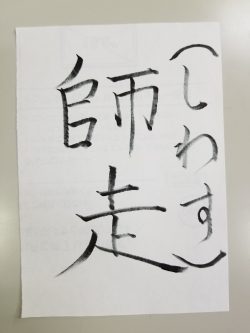 師走
（しわす）